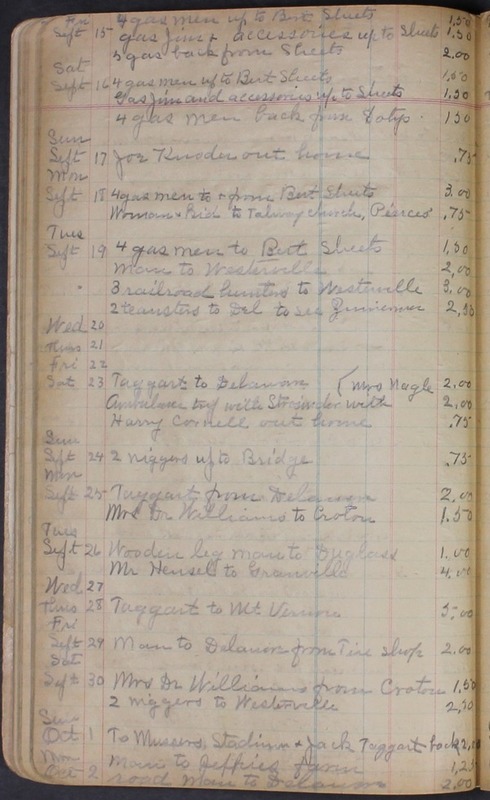 Fri 4 gas men up to Bert Sheets 1.50
Sept 15 gas Jim & accessories up to Sheets 1.50
5 gas back from Sheets 2.00
Sat
Sept 16 4 gas men up to Bert Sheets 1.50
Gas Jim and accessories up to Sheets 1.50
4 gas men back from Dotys 1 50
Sun
Sept 17 Joe Knoder out home .75
Mon
Sept 18 4 gas men to & from Bert Sheets 3.00
Woman & Kid to church, Pierces .75
Tues
Sept 19 4 gas men to Bert Sheets 1.50
Man to Westerville 2.00
3 railroad hunters to Westerville 3.00
2 teamsters to Del to see 2.50
Wed 20
Thurs 21
Fri 22
Sat 23 Taggart to Delaware (Mrs Nagle 2.00
Ambulance with with 2.00
Harry Cornell out home .75
Sun
Sept 24 2 niggers up to Bridge .75
Mon
Sept 25 Taggart from Delaware 2.00
Mrs Dr Williams to Croton 1.50
Tues
Sept 26 Wooden leg man to Duglass 1.00
Mr Hensel to Granville 4.00
Wed 27
Thurs 28 Taggart to Mt Vernon 5.00
Fri
Sept 29 Man to Delaware from Tire shop 2.00
Sat
Sept 30 Mrs Dr Williams from Croton 1.50
2 niggers to Westerville 2.50
Sun
Oct 1 To Mussers, Stadium & Jack Taggart back
Mon Man to Jeffries farm 1.25
Oct 2 road man to Delaware 2.00